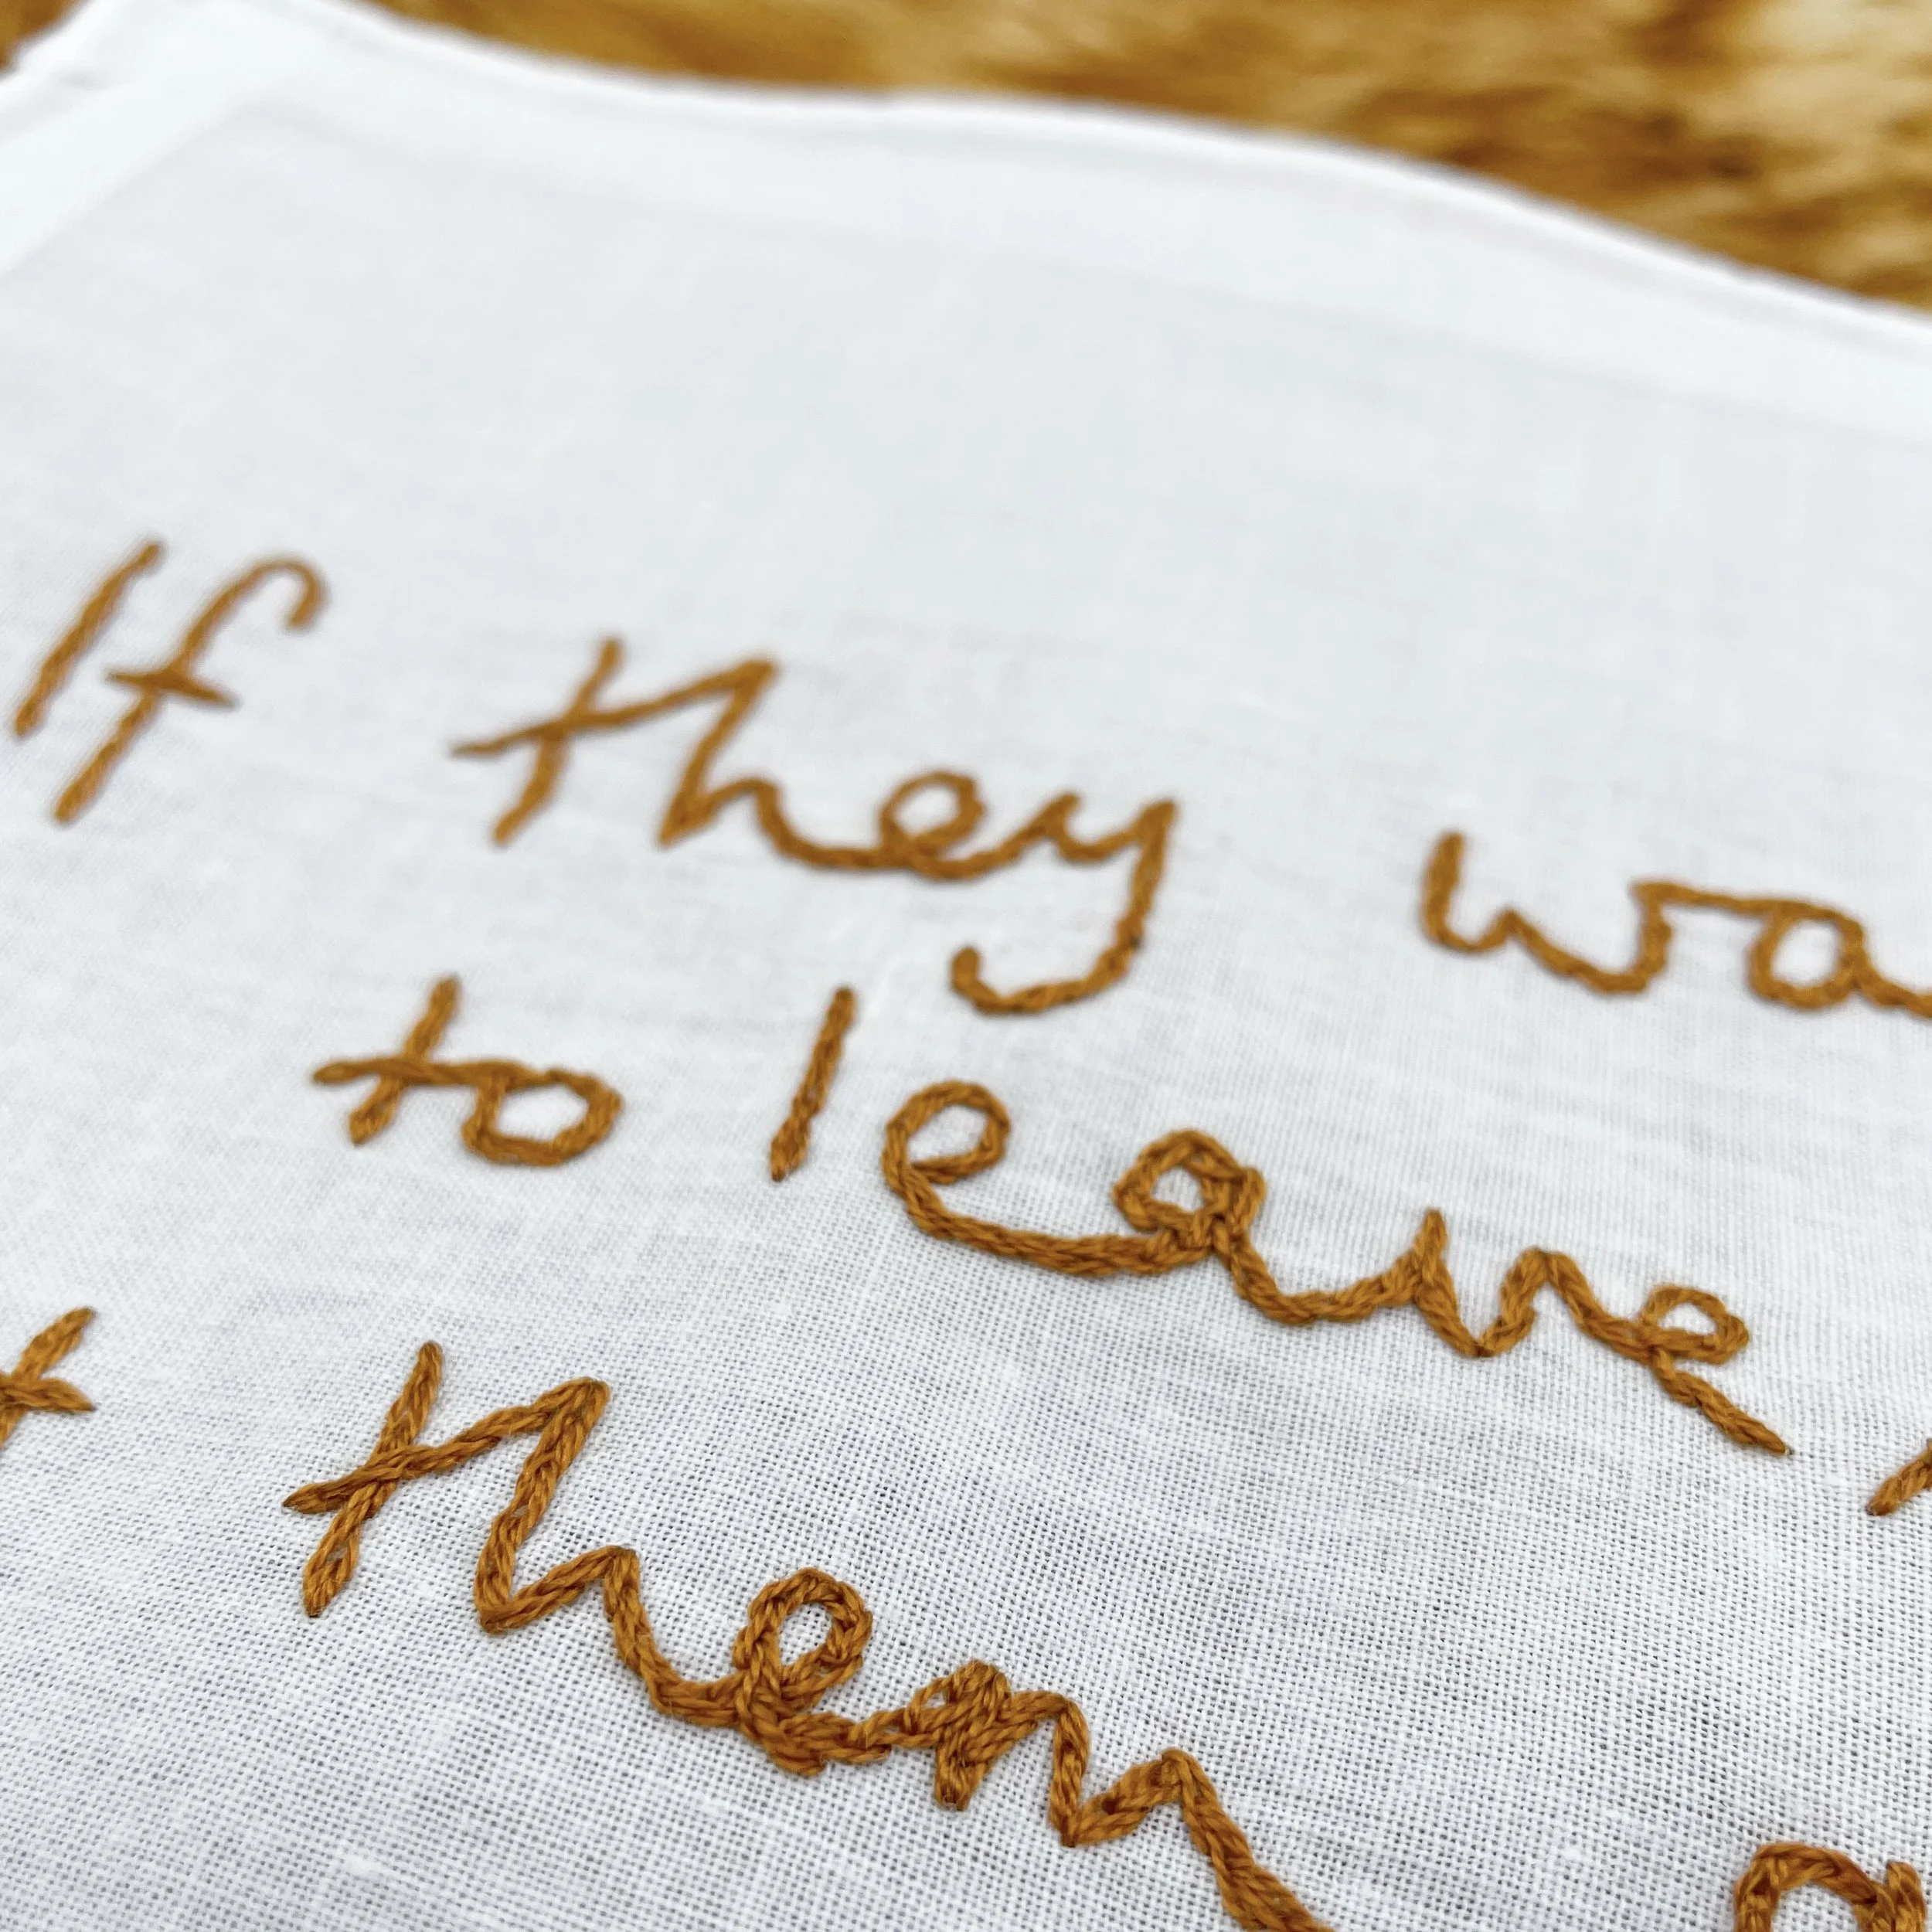 If they wa
to leave
t them